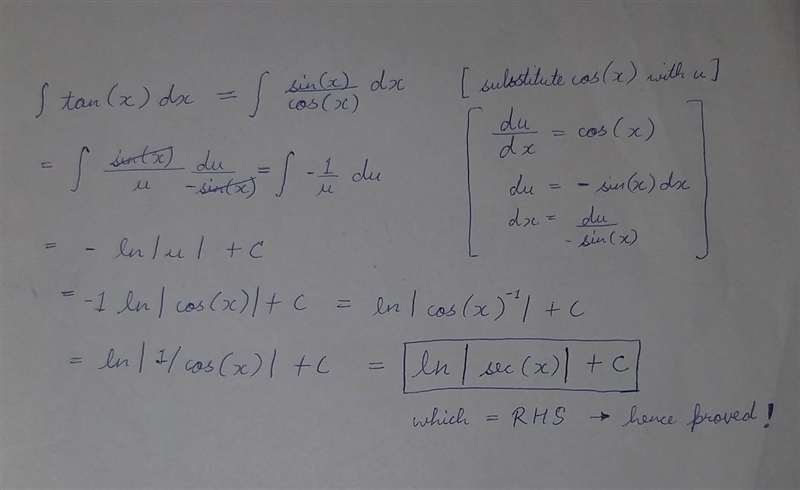 ∫ tan(x) dx = ∫ sin(x)/cos(x) dx [substitute cos(x) with u]
du/dx = cos(x)
= ∫ sin(x)/u du/-sin(x) = ∫ -1/u du
du = - sin(x) dx
dx = du/-sin(x)
= - ln|u| + C
= -1 ln|cos(x)| + C = ln|cos(x)⁻¹| + C
= ln|1/cos(x)| + C = ln|sec(x)| + C
which = RHS → hence proved!